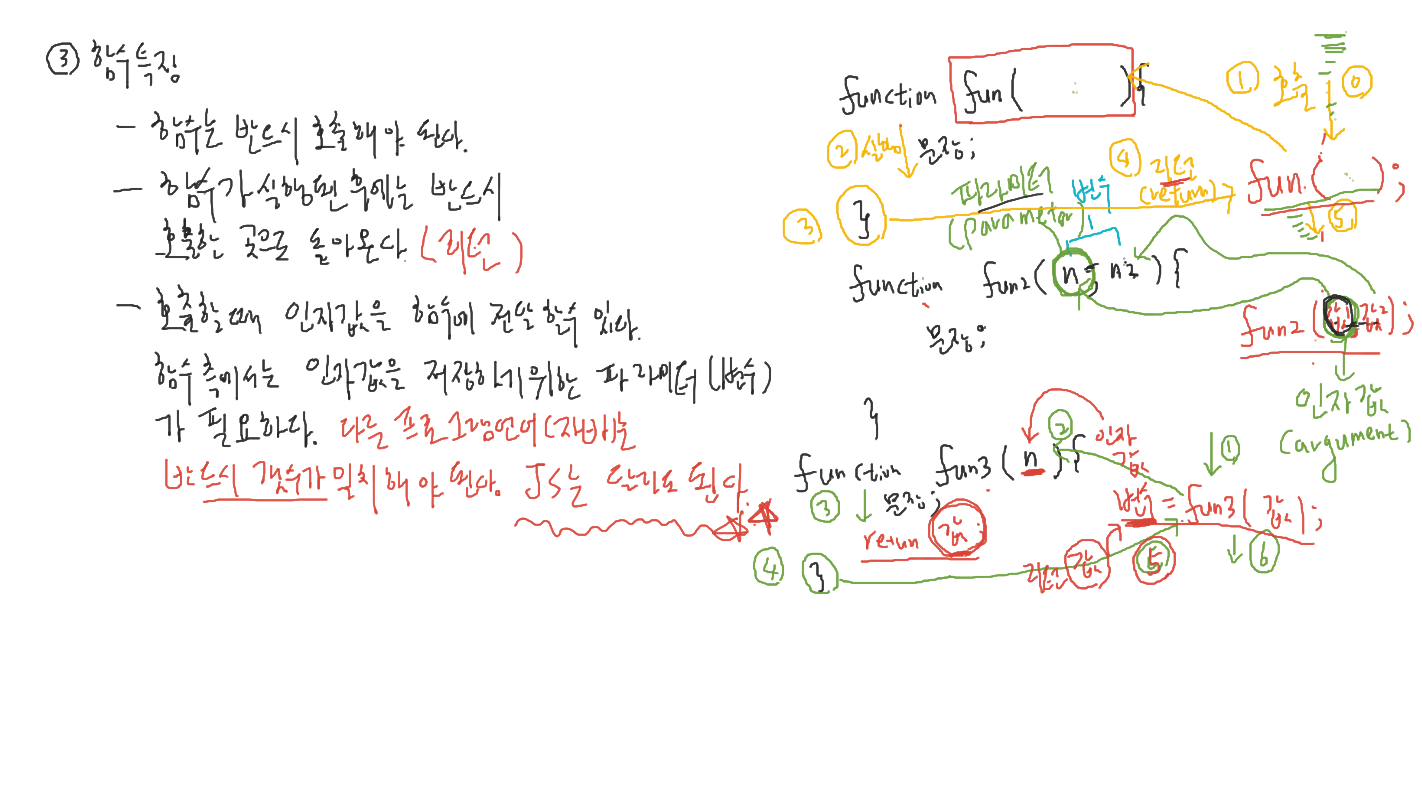 ③ 함수특징
- 함수는 반드시 호출해야 된다.
- 함수가 실행된 후에는 반드시
호출한 곳으로 돌아온다. (리턴)
- 호출할때 인자값을 함수에 전달할수 있다.
함수 측에서는 인자값을 저장하기위한 파라미터 (변수)
가 필요하다. 다른 프로그램언어(자바)는
반드시 갯수가 일치해야 된다. JS는 달라도 된다.
function fun( ){
① 호출 ⓪
② 실행 문장;
④ 리턴
(return)
fun( );
③ } ⑤
파라미터 변수
(parameter)
function fun2(n, n2){
문장;
}
fun2(값1, 값2);
인자값
(argument)
② 인자값 ①
function fun3(n){
③ 문장;
retun 값
변수 = fun3(값);
④ } 리턴값 ⑤ ⑥